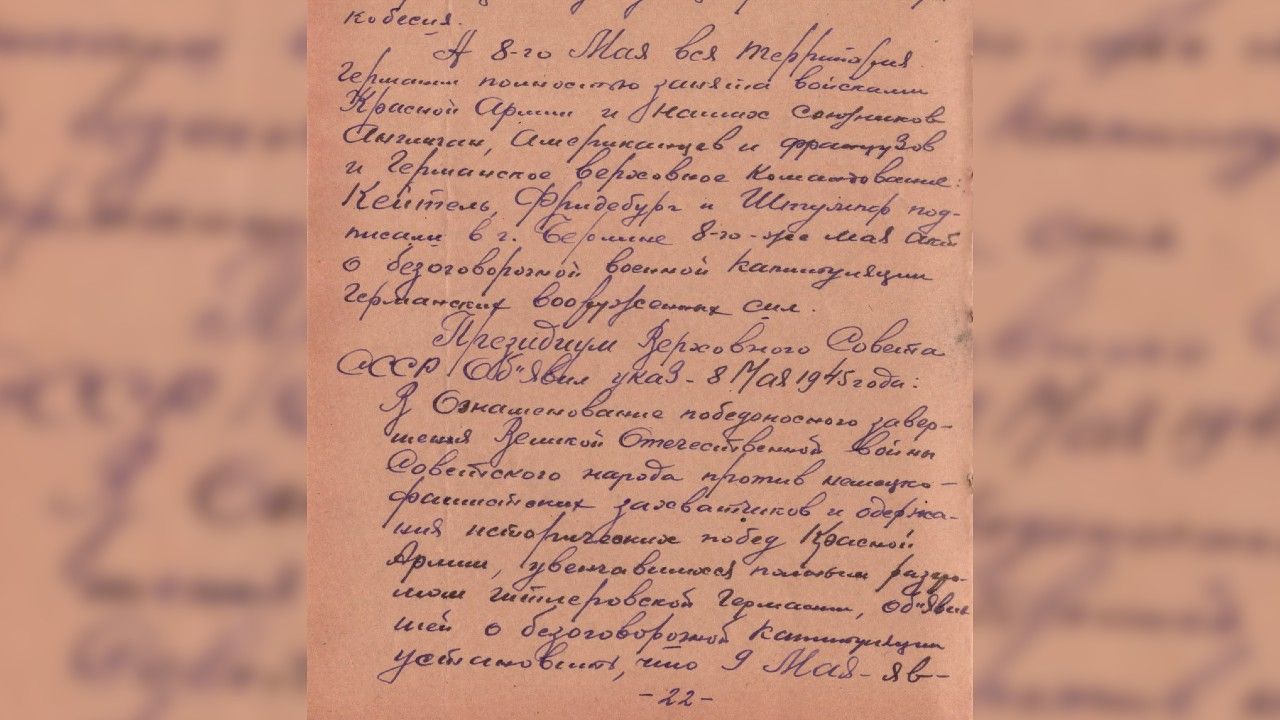 кобесия.
А 8-го Мая вся территория
Германии полностью занята войсками
Красной Армии и наших союзников
Англичан, Американцев и французов
и Германское верховное командование:
Кейтель, Фридебург и Штумпф под-
писали в г. Берлине 8-го-же мая акт
о безоговорочной военной капитуляции
Германских вооруженных сил.
Президиум Верховного Совета
СССР Об"явил указ - 8 Мая 1945 года:
В Ознаменование победоносного завер-
шения Великой Отечественной войны
Советского народа против немецко-
фашистских захватчиков и одержа-
ния исторических побед Красной
Армии, увенчавшихся полным разгро-
мом гитлеровской Германии, об"явив
шей о безоговорочной капитуляции
установить, что 9 Мая - яв-
-22-